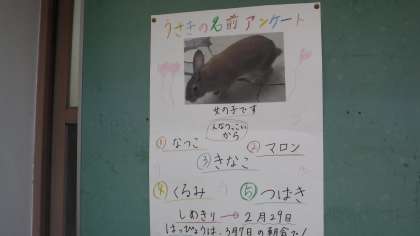 うさぎの名前アンケート
女の子です
から
①なっこ ②マロン
③きなこ
④くるみ ⑤つばき
しめきり→2月29日
はっぴょうは、3月7日の朝会で!